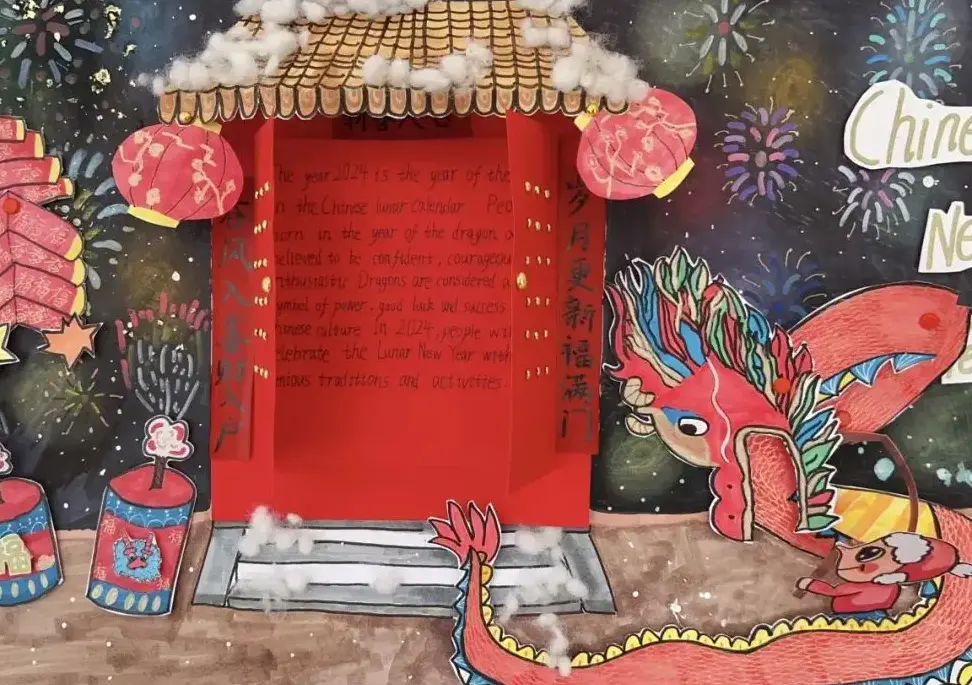 The year 2024 is the year of the
in the Chinese lunar calendar. Peo
born in the year of the dragon a
believed to be confident, courageou
enthusiastic Dragons are considered a
symbol of power, good luck and success
Chinese culture In 2024, people wi
celebrate the Lunar New Year with
traditions and activities.
春风入喜财入户
岁月更新福满门
Chine
Ne
福
福
福
福